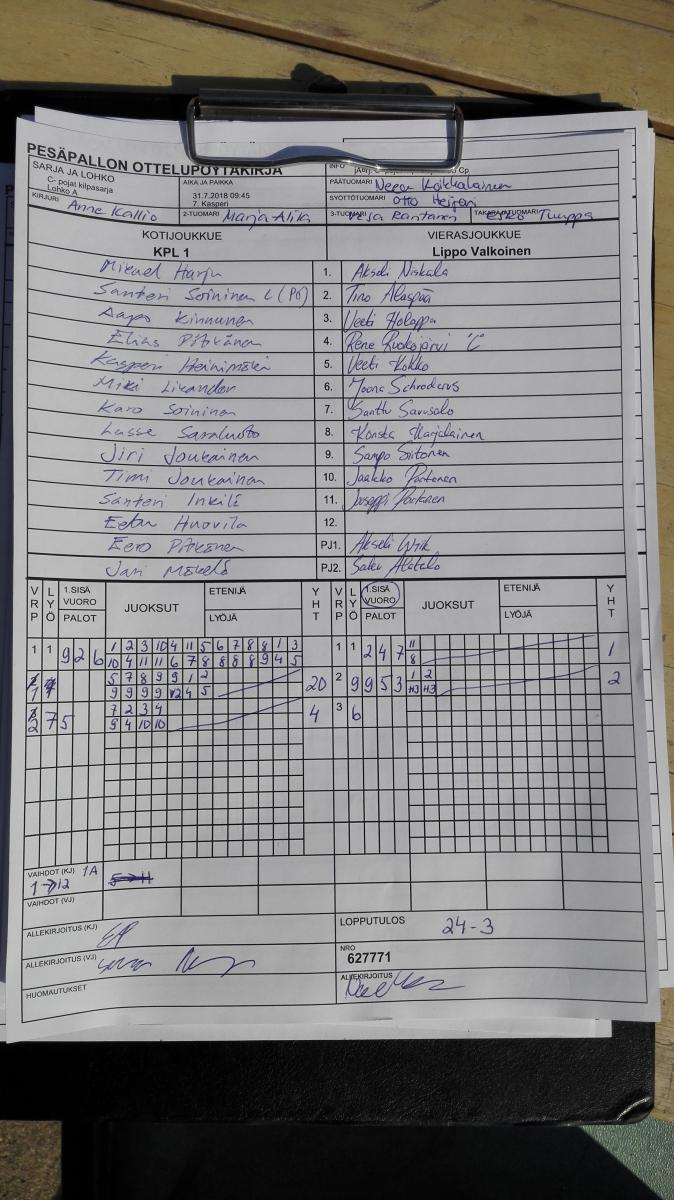 PESÄPALLON OTTELUPÖYTÄKIRJA
SARJA JA LOHKO
C- pojat kilpasarja
Lohko A
AIKA JA PAIKKA
31.7.2018 09:45
7. Kasperi
INFO
PÄÄTUOMARI
SYÖTTÖTUOMARI Otto
KIRJURI Anne Kallio
2-TUOMARI Marja Alika
3-TUOMARI Vesa Rantanen
TAKARAJATUOMARI Esko Tuuppa
KOTIJOUKKUE
VIERASJOUKKUE
KPL 1
Lippo Valkoinen
Mikael Harju 1. Akseli Niskala
Santeri Soininen L (PO) 2. Tino Alaspää
Aapo Kinnunen 3. Veeti Holappa
Elias Pitkänen 4. Rene Ruokojärvi "C"
Kasperi Heinimäki 5. Veeti Kokko
Miki Likander 6. Joona Schroderus
Karo Soininen 7. Santtu Savusalo
Lasse 8. Konsta Karjalainen
Jiri Joukainen 9. Sampo Siitonen
Timi Joukainen 10. Jaakko Partanen
Santeri Inkilä 11. Jooseppi Partanen
Eetu Huovila 12.
Eero Pitkänen PJ1. Akseli
Jari Mäkelä PJ2. Saku Alatalo
VRP LYÖ 1.SISÄ VUORO PALOT JUOKSUT ETENIJÄ LYÖJÄ YHT VRP LYÖ 1.SISÄ VUORO PALOT JUOKSUT ETENIJÄ LYÖJÄ YHT
1 1 9 2 6 1 2 3 10 4 11 5 6 7 8 8 1 3 1 1 2 4 7 11 1
10 4 11 11 6 7 8 8 8 8 9 4 5 8
5 7 8 9 9 1 2 20 2 9 9 5 3 1 2 2
9 9 9 9 12 4 5 H3 H3
2 7 5 7 2 3 4 4 3 6
9 4 10 10
VAIHDOT (KJ) 1A
1→12 5→11
VAIHDOT (VJ)
ALLEKIRJOITUS (KJ) EP
LOPPUTULOS 24-3
ALLEKIRJOITUS (VJ)
NRO
627771
HUOMAUTUKSET
ALLEKIRJOITUS